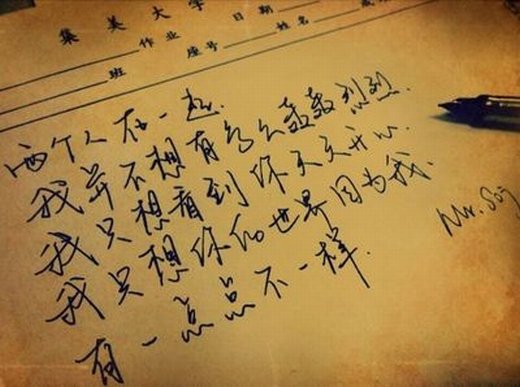 集美大学
作业 座号 姓名
日期
班
两个人在一起.
我并不想有多么轰轰烈烈.
我只想看到你天天开心.
我只想你的世界因为我.
有一点点不一样.
Mr. Song